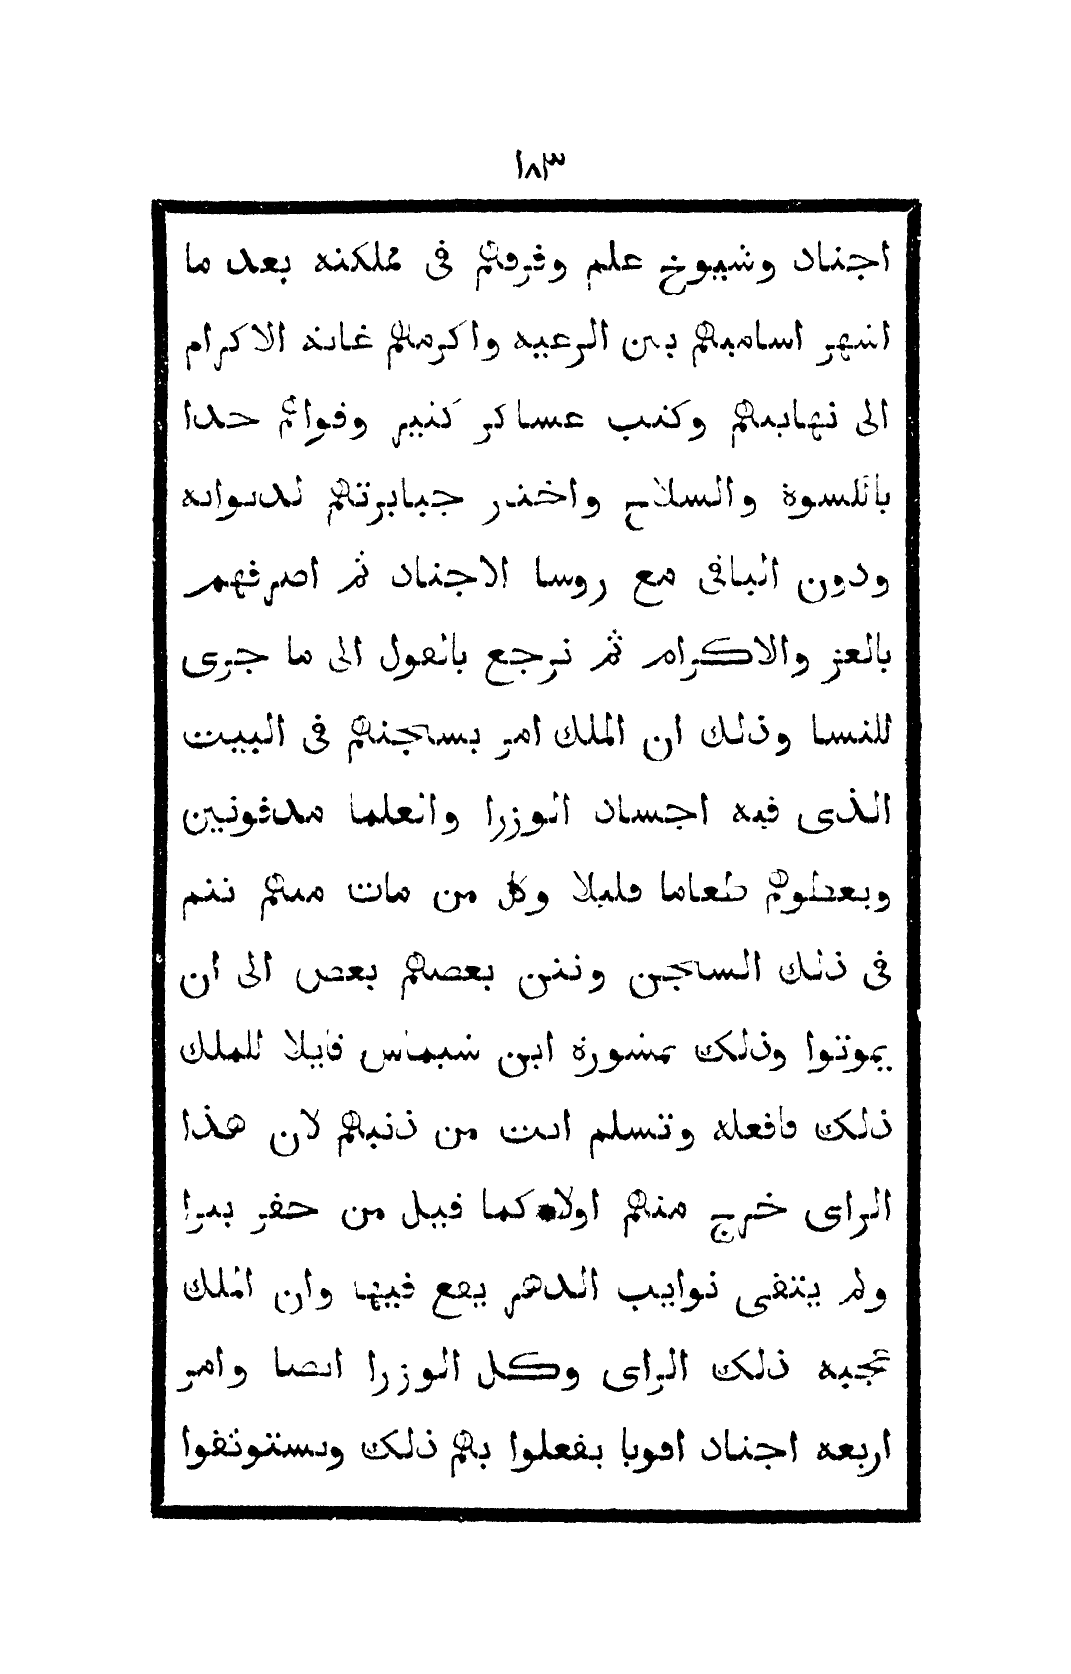 ١٨٣
اجناد وشيوخ علم وفرقهم فى مملكته بعد ما
اشهر اساميهم بين الرعيه واكرمهم غاية الاكرام
الى نهايتهم وكتب عساكر كثير وقوايم حدا
بالكسوة والسلاح واختار جبابرتهم لديوانه
ودون الباقى مع روسا الاجناد ثم اصرفهم
بالعز والاكرام ثم نرجع بالقول الى ما جرى
للنسا وذلك ان الملك امر بسجنهم فى البيت
الذى فيه اجساد الوزرا والعلما مدفونين
ويعطوهم طعاما قليلا وكل من مات منهم ينتم
فى ذلك السجن وننتن بعضهم بعض الى ان
يموتوا وذلك بمشورة ابن شيماس قايلا للملك
ذلك فافعله وتسلم انت من ذنبهم لان هذا
الراى خرج منهم اولا كما قيل من حفر بيرا
ولم يتقى نوايب الدهر يقع فيها وان الملك
عجبه ذلك الراى وكل الوزرا ايضا وامر
اربعه اجناد اقويا يفعلوا بهم ذلك ويستوثقوا